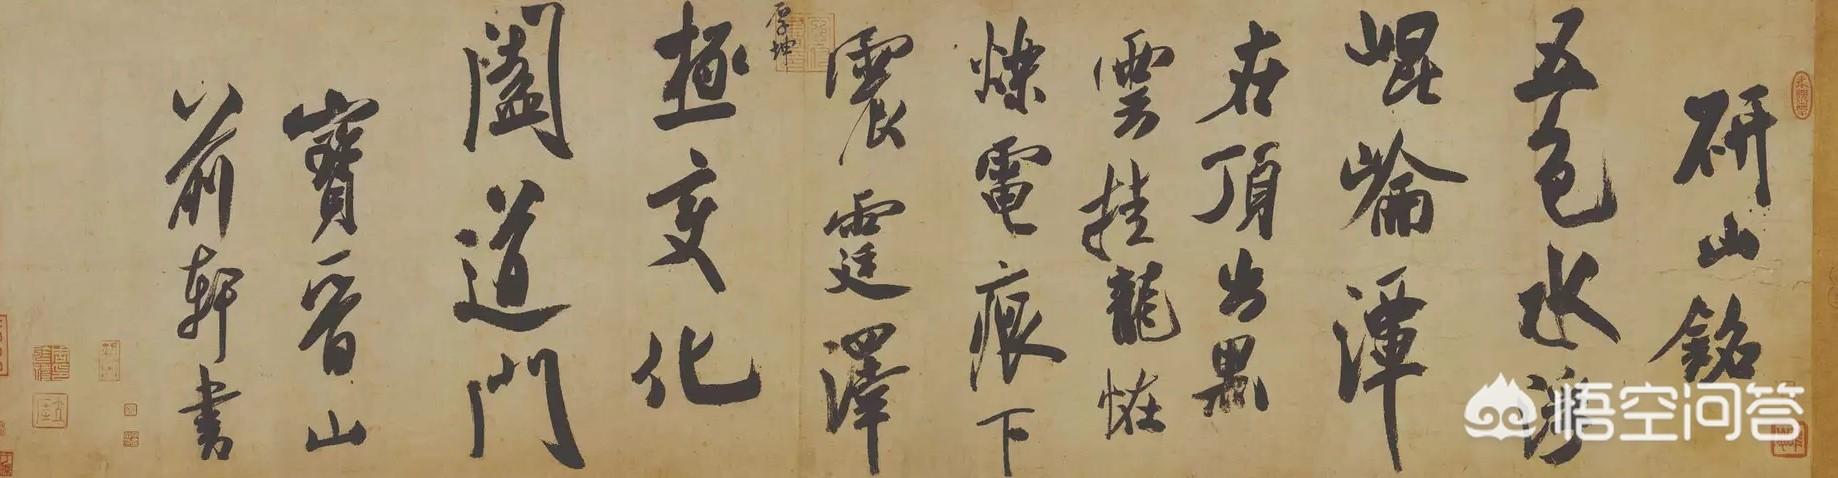 研山銘
五色水浮
崐崘潭
在頂出黑
雲挂龍恠
爍電痕下
震霆澤
厚坤
極變化
闔道門
寶晉山
前軒書
悟空问答